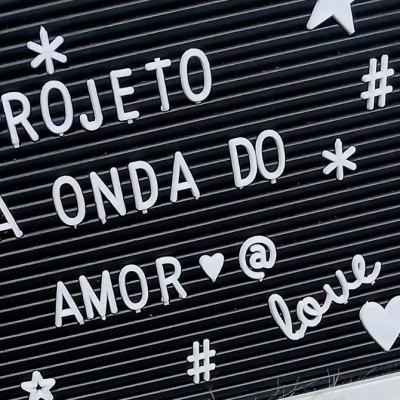 *
ROJETO
#
A ONDA DO *
AMOR ♥ @
love
#